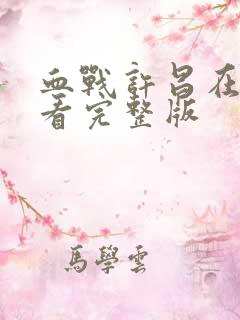 血戰許昌在
看完整版
馬學雲